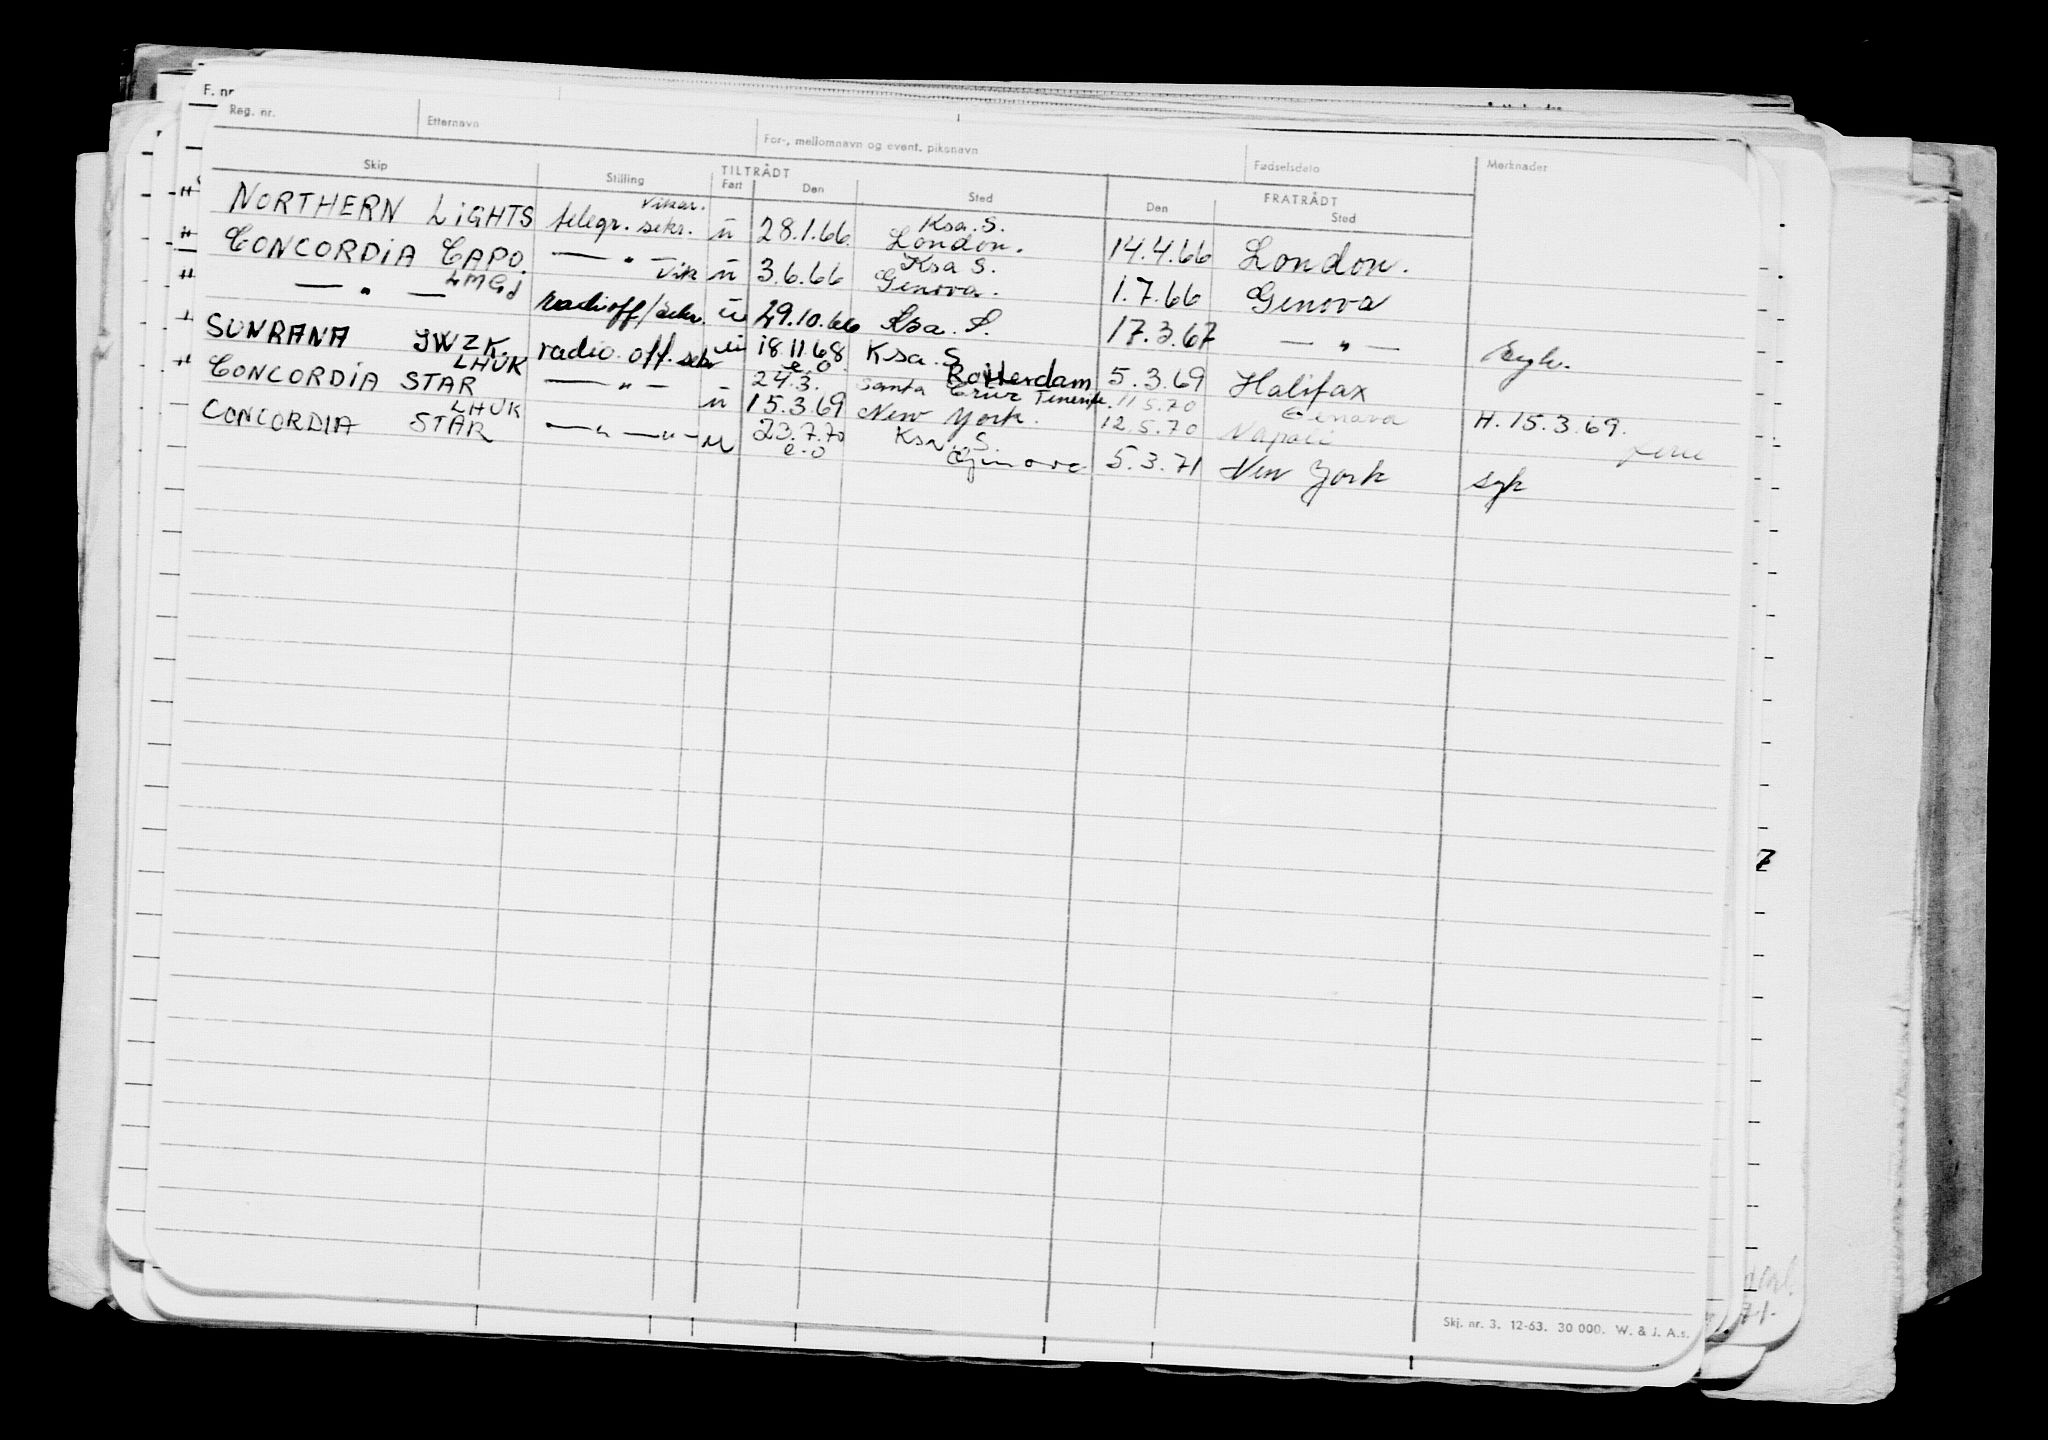 F. nr
Reg. nr. Etternavn For-, mellomnavn og event. pikenavn Fødselsdato Merknader
Skip Stilling TILTRÅDT FRATRÅDT
Fart Den Sted Den Sted
NORTHERN LIGHTS telegr. sekr. Vikar. u 28.1.66 Ksa. S. London. 14.4.66 London.
CONCORDIA CAPO. — " — Vik u 3.6.66 Ksa S. Genova. 1.7.66 Genova
— " — LMGJ radioff/sekr. u 29.10.66 Ksa. S. 17.3.67 — " — sygh.
SUNRANA JWZK. radio. off. sekr u 18.11.68 e.o. Ksa. S. Rotterdam 5.3.69 Halifax
CONCORDIA STAR LHUK — " — 24.3. Santa Cruz Tenerife. 11.5.70 Genova
u 15.3.69 New York. 12.5.70 Napoli H. 15.3.69. ferie
CONCORDIA STAR LHUK — " — " — u 23.7.70 e.o Ksa. S. Genova 5.3.71 New York syk
7
71.
Skj. nr. 3. 12-63. 30 000. W. & J. A.s.